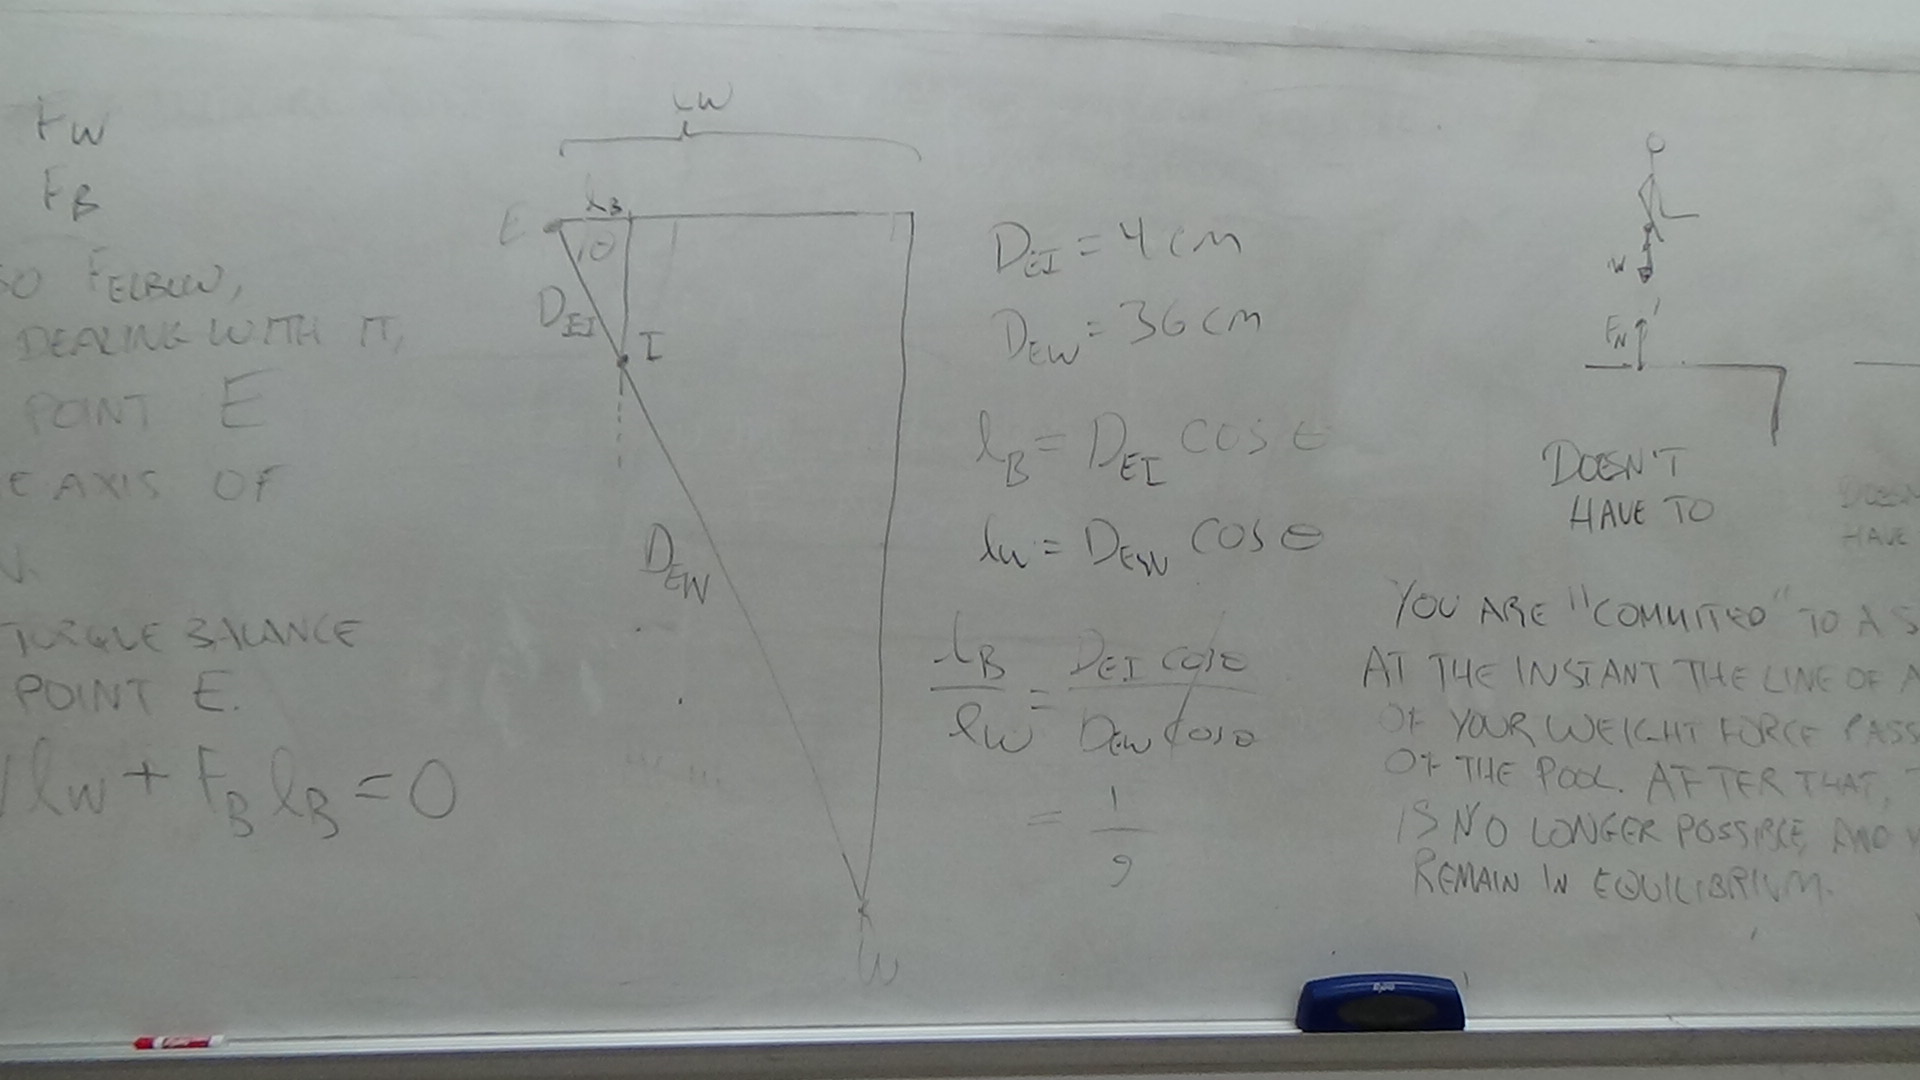 FW
FB
SO FELBOW,
DEALING WITH IT,
POINT E
E AXIS OF
TORQUE BALANCE
POINT E.
lW + FB lB = 0
lW
E
lB
θ
DEI
I
DEW
W
DEI = 4 cm
DEW = 36 cm
lB = DEI COS θ
lW = DEW COS θ
lB / lW = DEI cosθ / DEW cosθ
= 1 / 9
W
FN
DOESN'T
HAVE TO
HAVE
YOU ARE "COMMITTED" TO A S
AT THE INSTANT THE LINE OF A
OF YOUR WEIGHT FORCE PASS
OF THE POOL. AFTER THAT, T
IS NO LONGER POSSIBLE, AND
REMAIN IN EQUILIBRIUM.
Expo